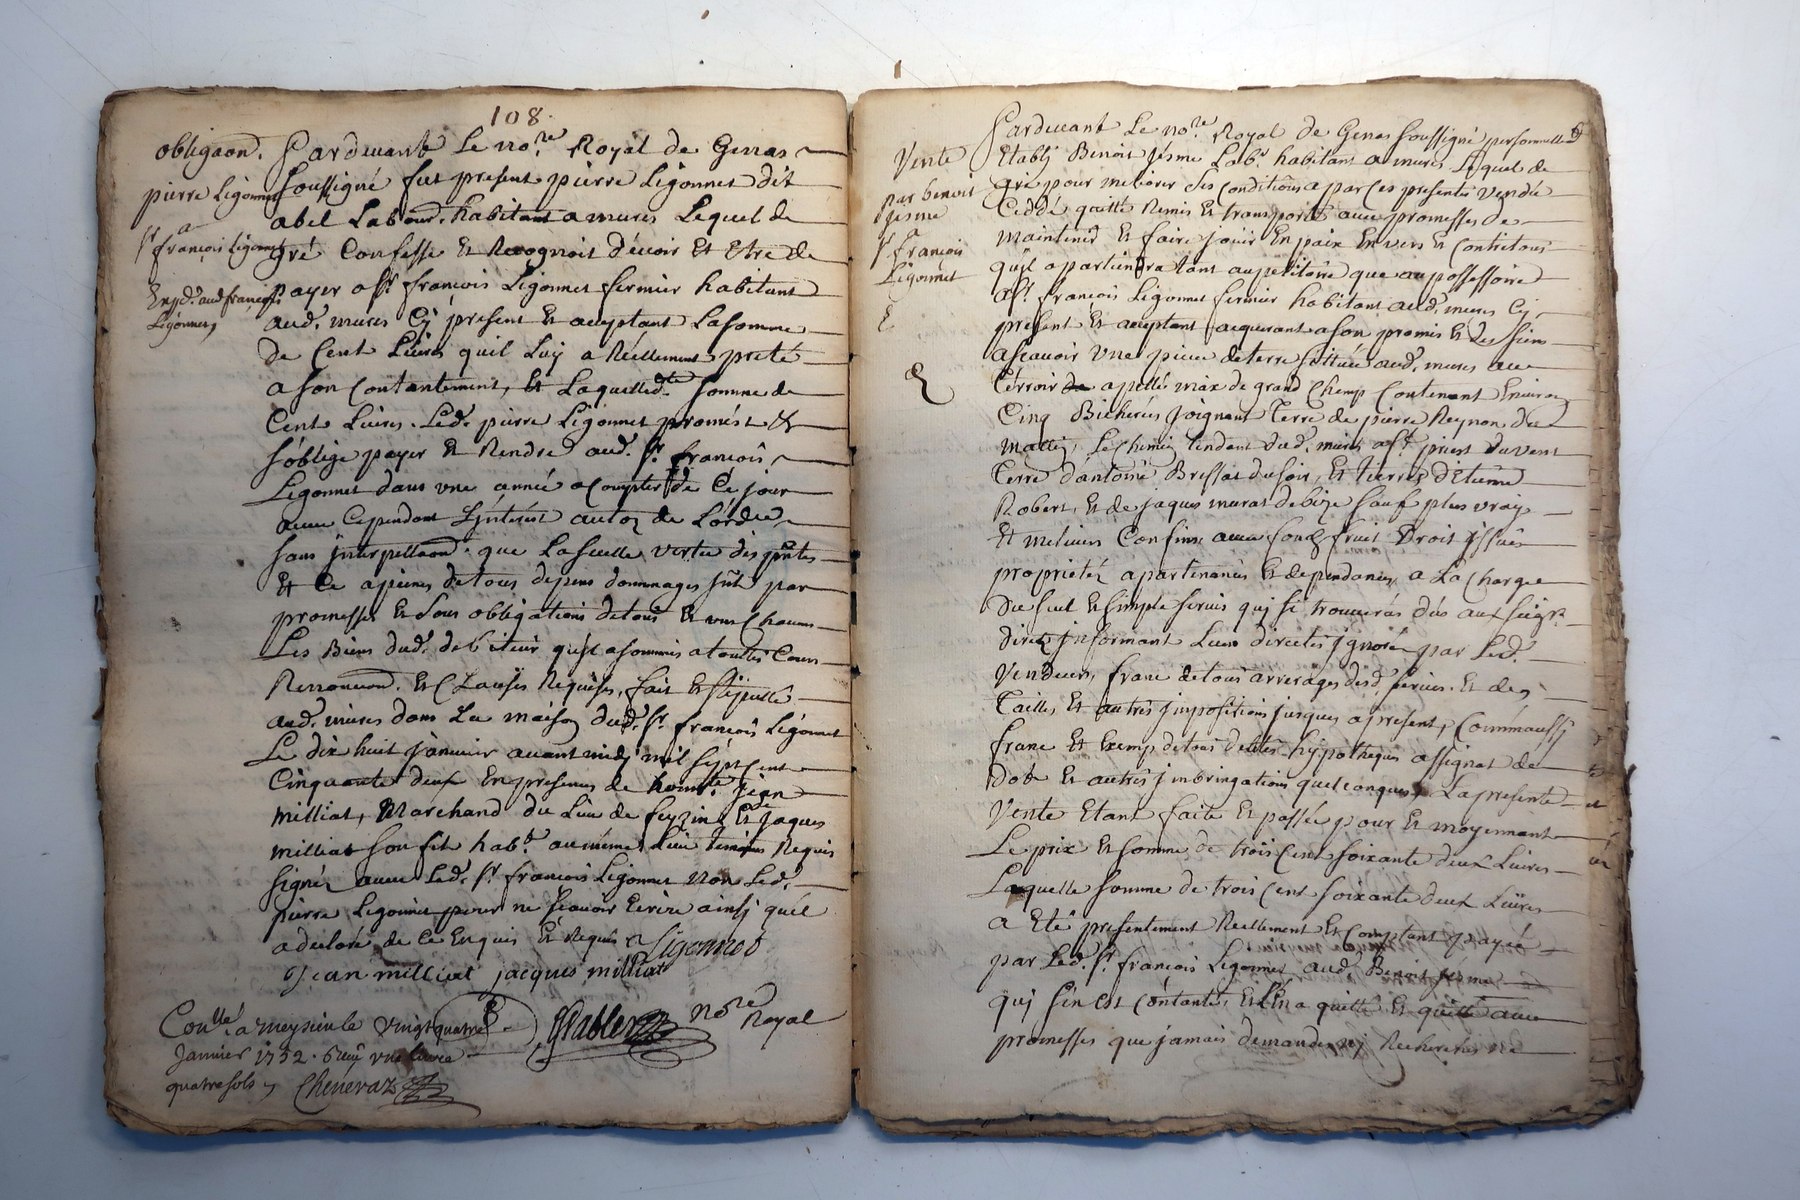 108.
obligaon.
pierre Ligonnet
a
Sr françois Ligonnet
Expd. aud françois
Ligonnet,
Pardevant Le nore. Royal de Genas
soussigné fut present pierre Ligonnet dit
abel Labour. habitant a mures Lequel de
gré Confesse Et Recognoit devoir Et Etre de
payer a Sr. françois Ligonnet fermier habitant
aud. mures Cy present Et acceptant La somme
de Cent Livres quil Luy a Réellement preté
a son Contantement, Et Laquelle dte somme de
Cent Livres. Led. pierre Ligonnet promést &
s'oblige payer Et Rendre aud. Sr. françois
Ligonnet dans vne année a Compter de Ce jour
avec Cependant Lintérést au de Lordce
sans jnterpellaon. que La seulle vertu des pntes
Et Ce a peines de tous depens dommages sût par
promesses Et sous obligations de tous Et vns Chacuns
Les Biens dud. debiteur qujl a soumis a toutes Cours
Renonciaon. Et Clauses Requises, fait Et stipullé
aud. mures dans La maison dud. Sr. françois Ligonnet
Le dix huit janvier avant midj mil sept Cent
Cinquante deux En presence de honnte. jean
milliat, Marchand du Lieu de feyzin Et jaques
milliat son fils habt. au même Lieu temoins Requis
signés avec Led. Sr. françois Ligonnet non Led.
pierre Ligonnet pour ne scavoir Ecrire ainsj quil
a declaré de Ce Enquis Et Requis Ligonnet
Jean milliat jacques milliat
nore Royal
Conllé. a meysieu le vingt quatre
Janvier 1752. Reçu vne livre
quatre sols Chenevaz
Vente
par benoit
jesme
a
Sr françois
Ligonnet
Pardevant Le nore. Royal de Genas soussigné personnellemt
Etablj Benoit jésme Labr. habitant a mures Lequel de
gré pour meliorer ses Conditions a par Ces presentes vendu
Ceddé quitté Remis Et transporté avec promesses de
maintenir Et faire jouir En paix Envers Et Contre tous
qujl apartiendra tant au petitoire que au possessoire
a Sr. françois Ligonnet fermier habitant aud. mures Cy
present Et acceptant acquerant a son promis Et des siens
a scavoir vne piece de terre scittuée aud. mures au
Terroir apellé máx de grand Champ Contenant Environ
Cinq Bicherées joignant Terre de pierre Reynon du
matin, Le Chemin tendant dud. mures a St. priest du vent
Terre d'antoine Bressat du soir, Et terres d'Etienne
Robert, Et de jaques murat de bize sauf plus vrays
Et meilieurs Confins avec fruit Droit jssues
proprietés apartenances Et dependances a La Charge
du seul Et simple servis quj se trouveras dûs aux seigrs.
directs jnformant Leurs directes jgnorés par Led.
vendeur, franc de tous arrerages desd. servis. Et des
Tailles Et autres jmpositions jusques apresent, Comme aussj
franc Et Exemp de tous debtes hypotheques assignat de
dot Et autres jmbringations quelconques, La presente
vente Etant faite Et passée pour Et moyennant
Le prix Et somme de trois Cent soixante deux Livres
Laquelle somme de trois Cent soixante deux Livres
a Eté presentement Réellement Et Comptant payée
par Led. Sr. françois Ligonnet aud. Benoit jésme
quj s'en Est Contanté, Et L'En a quitté Et quitte avec
promesses que jamais demande nj Recherche ne